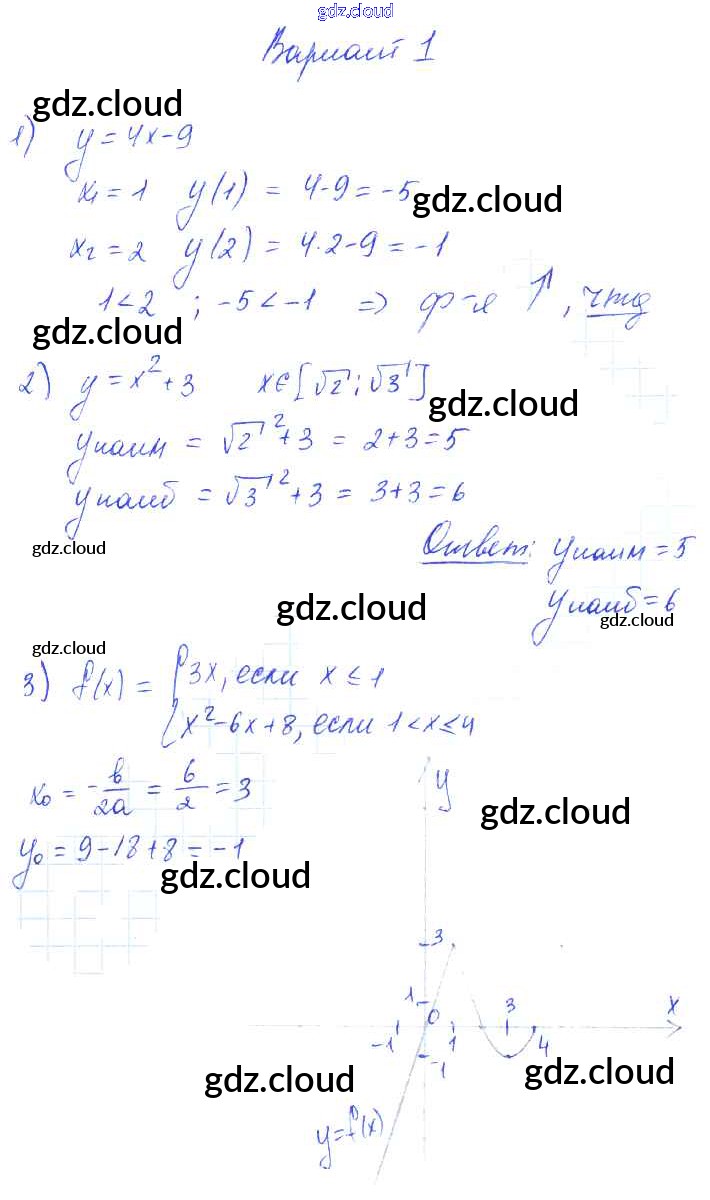 gdz.cloud
Вариант 1
gdz.cloud
1) y = 4x - 9
x₁ = 1 y(1) = 4-9 = -5
gdz.cloud
x₂ = 2 y(2) = 4·2-9 = -1
1<2 ; -5<-1 => ф-я ↑, чтд
gdz.cloud
2) y = x² + 3 x∈[√2; √3]
gdz.cloud
yнаим = √2² + 3 = 2+3=5
yнаиб = √3² + 3 = 3+3=6
gdz.cloud
Ответ: yнаим = 5
gdz.cloud
yнаиб = 6
gdz.cloud
gdz.cloud
3) f(x) = { 3x, если x ≤ 1
x²-6x+8, если 1<x≤4
x₀ = -в/2a = 6/2 = 3
y
gdz.cloud
y₀ = 9-18+8 = -1
gdz.cloud
3
1 0 3 x
-1 1 4
-1
gdz.cloud
gdz.cloud
y=f(x)